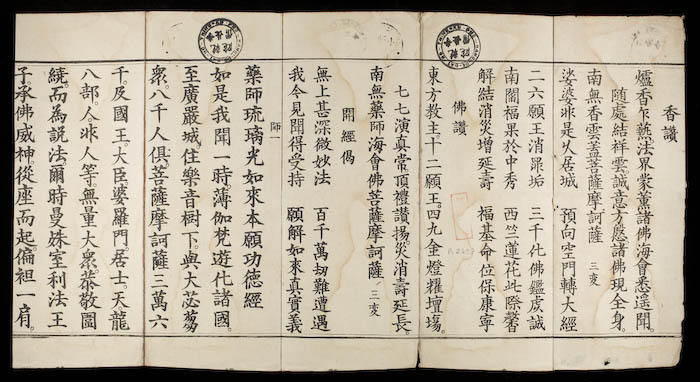 香讚
爐香乍爇法界蒙薰諸佛海會悉遙聞。
隨處結祥雲誠意方慇諸佛現全身。
南無香雲葢菩薩摩訶薩 三变
娑婆非是久居城 預向空門轉大經
二六願王消垢 三千化佛鑑虔誠
南閻福果於中秀 西竺蓮花此際馨
解結消災增延壽 福基命位保康寧
佛讚
東方教主。十二願王。四九金燈耀壇塲。
七七演真常頂禮讚揚。災消壽延長。
南無藥師海會佛菩薩摩訶薩 三变
開經偈
無上甚深微妙法 百千萬刼難遭遇
我今見聞得受持 願解如來真實義
師一
藥師琉璃光如來本願功德經
如是我聞。一時。薄伽梵遊化諸國。
至廣嚴城。住樂音樹下。與大苾蒭
眾。八千人俱。菩薩摩訶薩三萬六
千。及國王。大臣。婆羅門。居士。天龍
八部。人非人等。無量大眾。恭敬圍
繞。而為說法。爾時曼殊室利法王
子。承佛威神。從座而起。偏袒一肩。